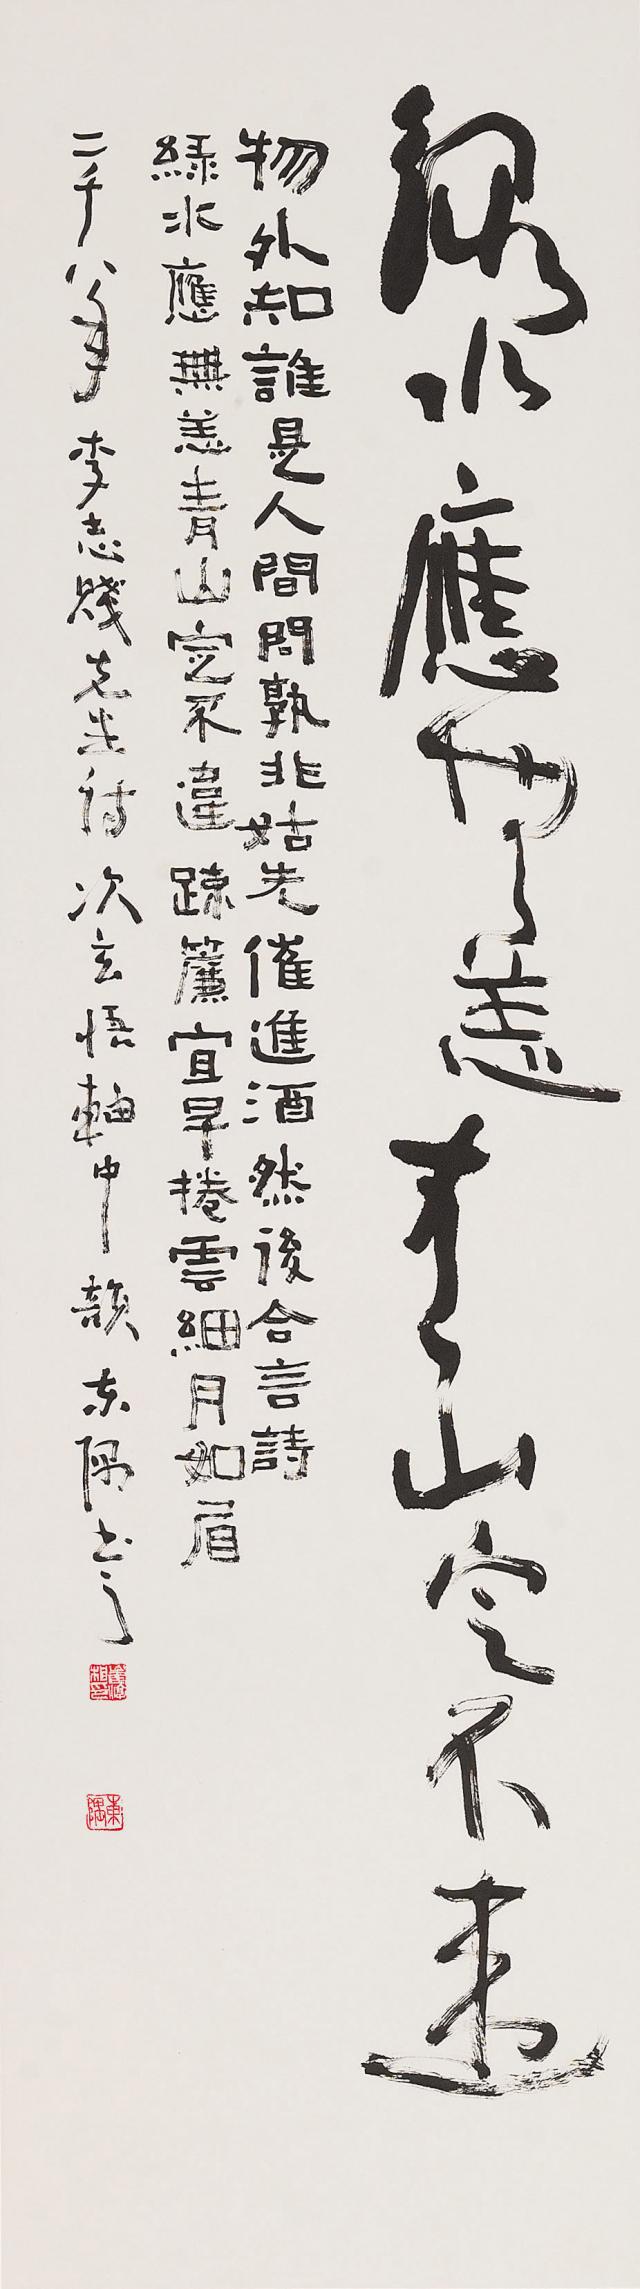 綠水應無恙青山定不違
物外知誰是人間問孰非姑先催進酒然後合言詩
綠水應無恙青山定不違踈簾宜早捲雲細月如眉
二千八年 李志賤先生詩 次玄悟軸中韻 东隅
東隅